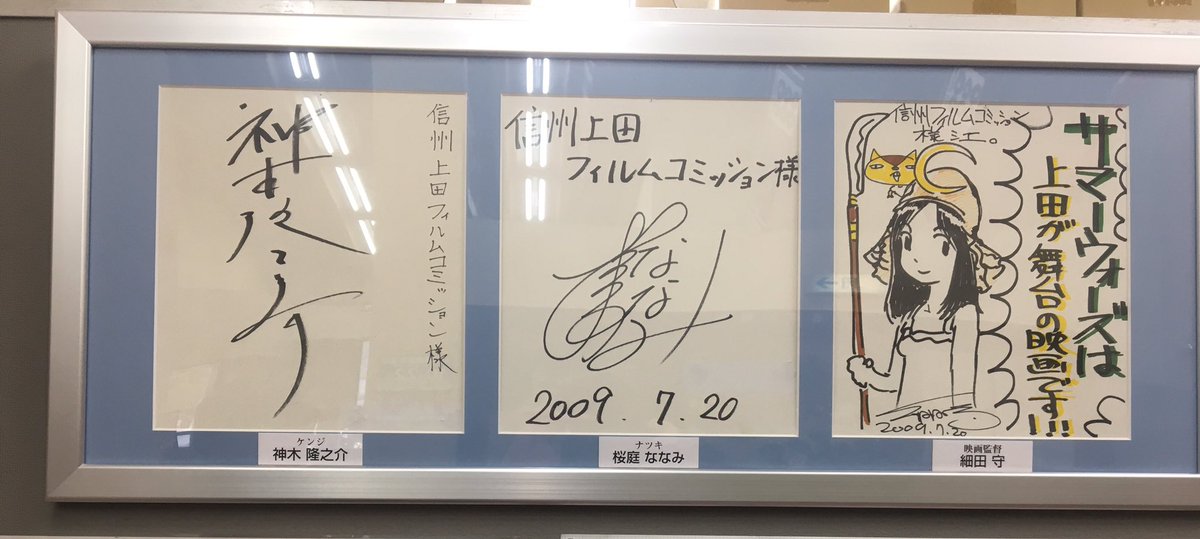 信州上田フィルムコミッション様
神木隆之介
ケンジ
神木 隆之介
信州上田
フィルムコミッション様
2009.7.20
ナツキ
桜庭 ななみ
信州フィルムコミッション
様江。
サマーウォーズは
上田が舞台の映画です!!!
2009.7.20
映画監督
細田 守